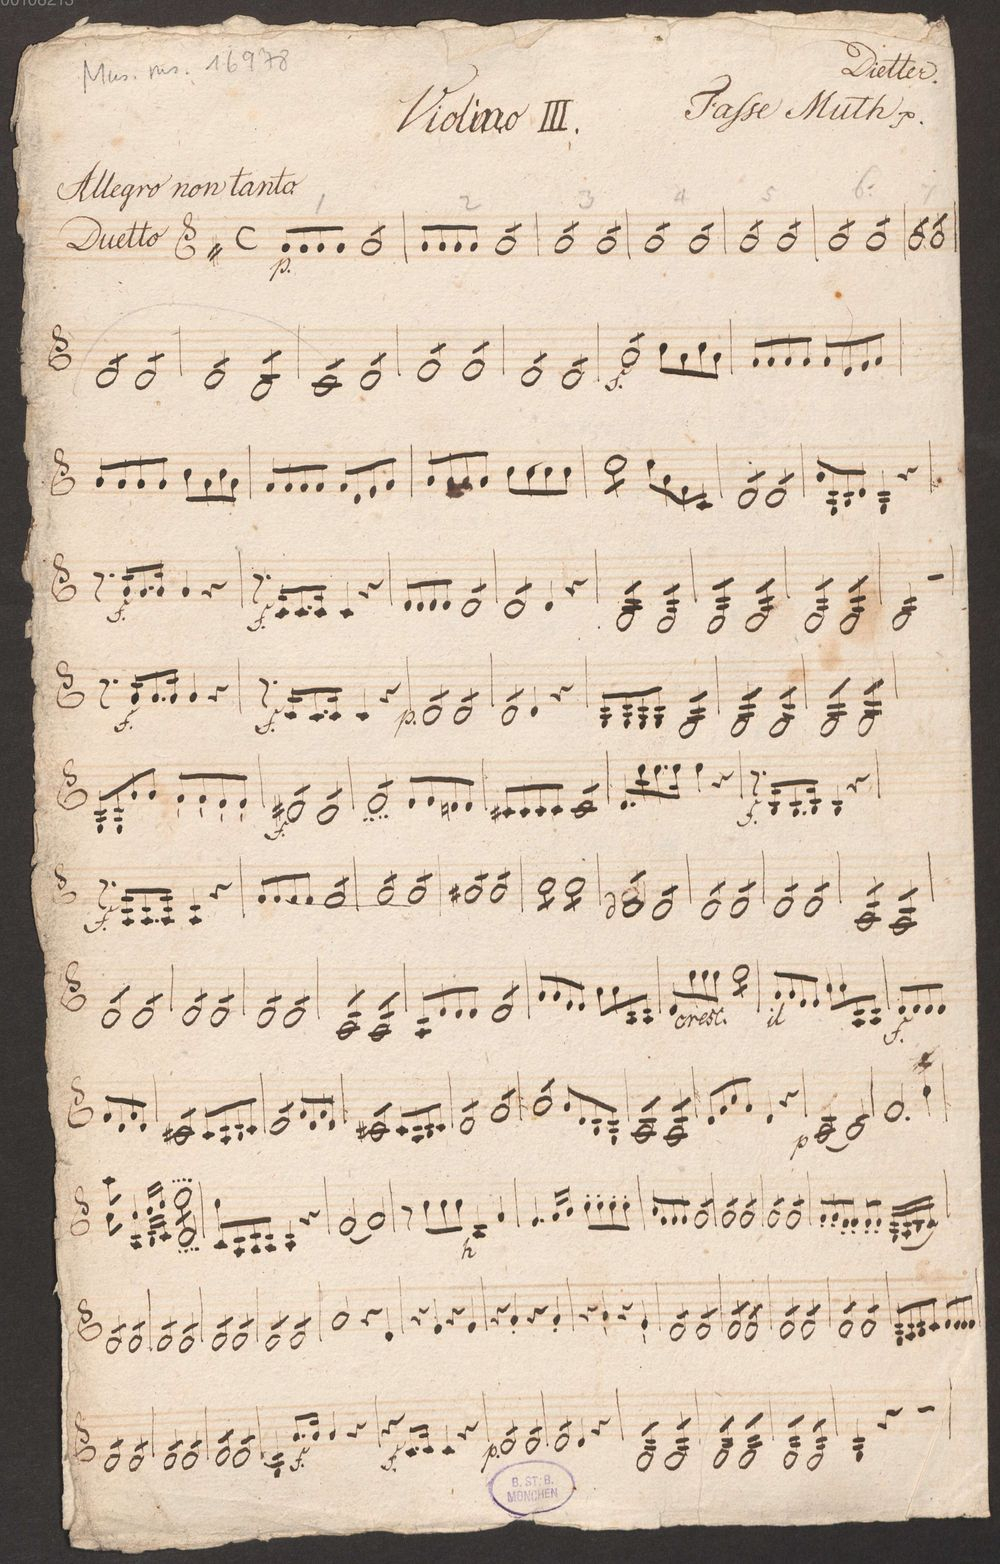 00108213
Mus. ms. 16978
Dietter.
Violino III.
Fasse Muth p.
Allegro non tanto
1 2 3 4 5 6. 7
Duetto C
p.
f.
f. f.
f. f. p.
f. f.
f.
cresc. il f.
p
h
f. f. p.
B. ST. B.
MÜNCHEN